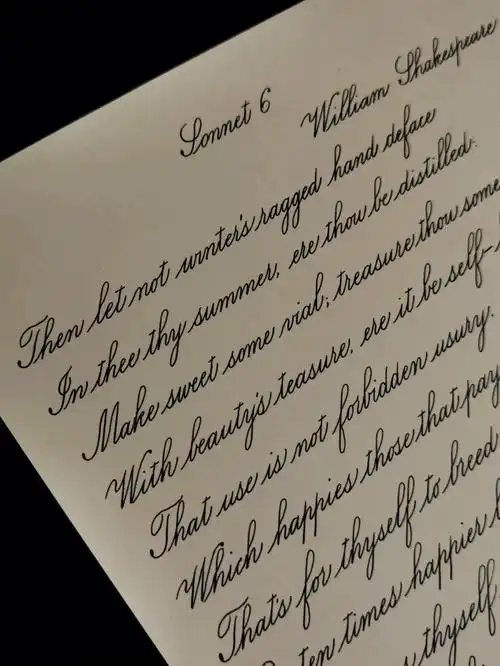 Sonnet 6 William Shakespeare
Then let not winter's ragged hand deface
In thee thy summer, ere thou be distilled:
Make sweet some vial; treasure thou some
With beauty's teasure, ere it be self-
That use is not forbidden usury.
Which happies those that pay
That's for thyself to breed
ten times happier
thyself